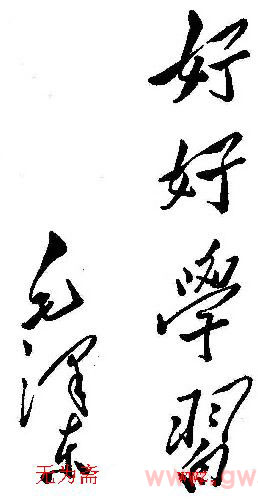 好好學習
毛泽东
无为斋
www.gw